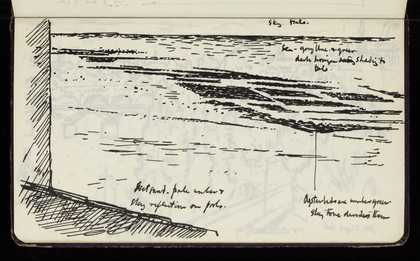 sky pale.
Sea - grey blue & green
dark horizon shading to
pale
Wet sand - pale umber &
sky reflection on pools.
Oyster beds are umber green
sky tone dividers